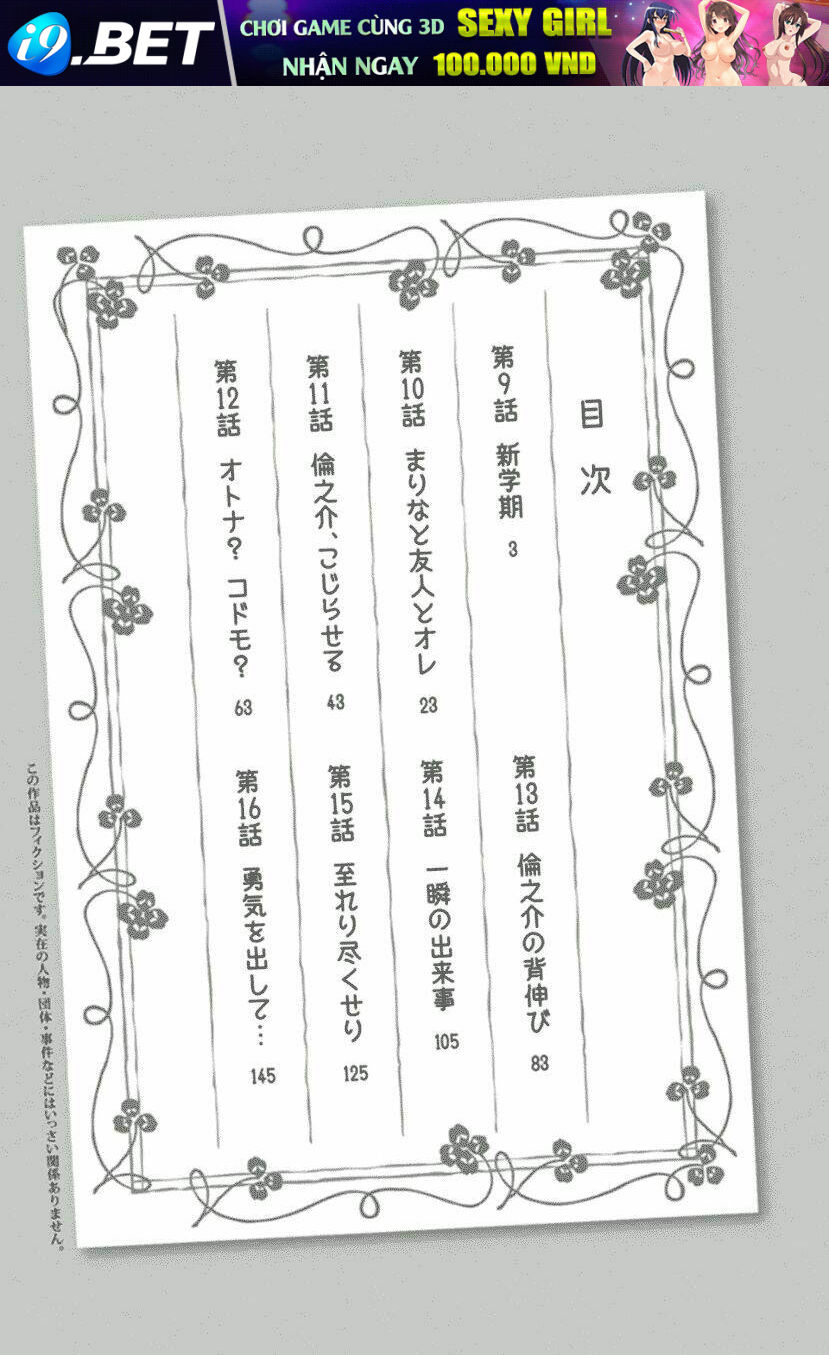 i9.BET
CHƠI GAME CÙNG 3D SEXY GIRL
NHẬN NGAY 100.000 VND
目次
第9話 新学期 3
第10話 まりなと友人とオレ 23
第11話 倫之介、こじらせる 43
第12話 オトナ? コドモ? 63
第13話 倫之介の背伸び 83
第14話 一瞬の出来事 105
第15話 至れり尽くせり 125
第16話 勇気を出して… 145
この作品はフィクションです。実在の人物・団体・事件などにはいっさい関係ありません。